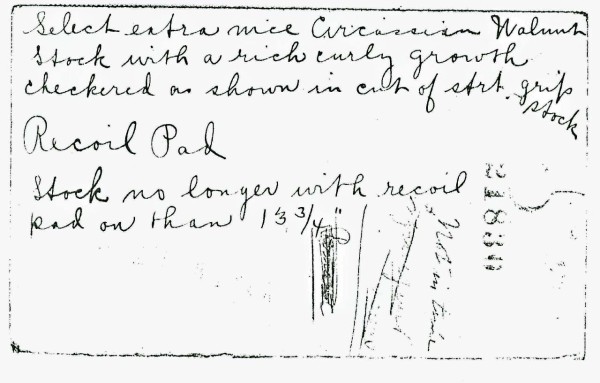 Select extra nice Circassian Walnut
Stock with a rich curly growth
checkered as shown in cut of strt. grip
stock
Recoil Pad
Stock no longer with recoil
pad on than 13 3/4"
Not in time
21880